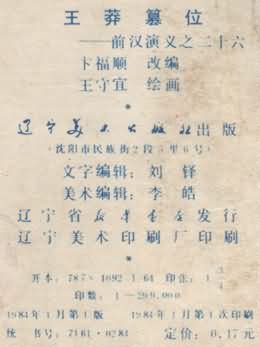 王莽篡位
——前汉演义之二十六
卞福顺 改编
王守宜 绘画
辽宁美术出版社出版
(沈阳市民族街2段5里6号)
文字编辑：刘铎
美术编辑：李皓
辽宁省新华书店发行
辽宁美术印刷厂印刷
开本：787×1092 1/64 印张：1 3/4
印数：1—200,000
1984年1月第1版 1984年1月第1次印刷
统一书号：7161·0284 定价：0.17元